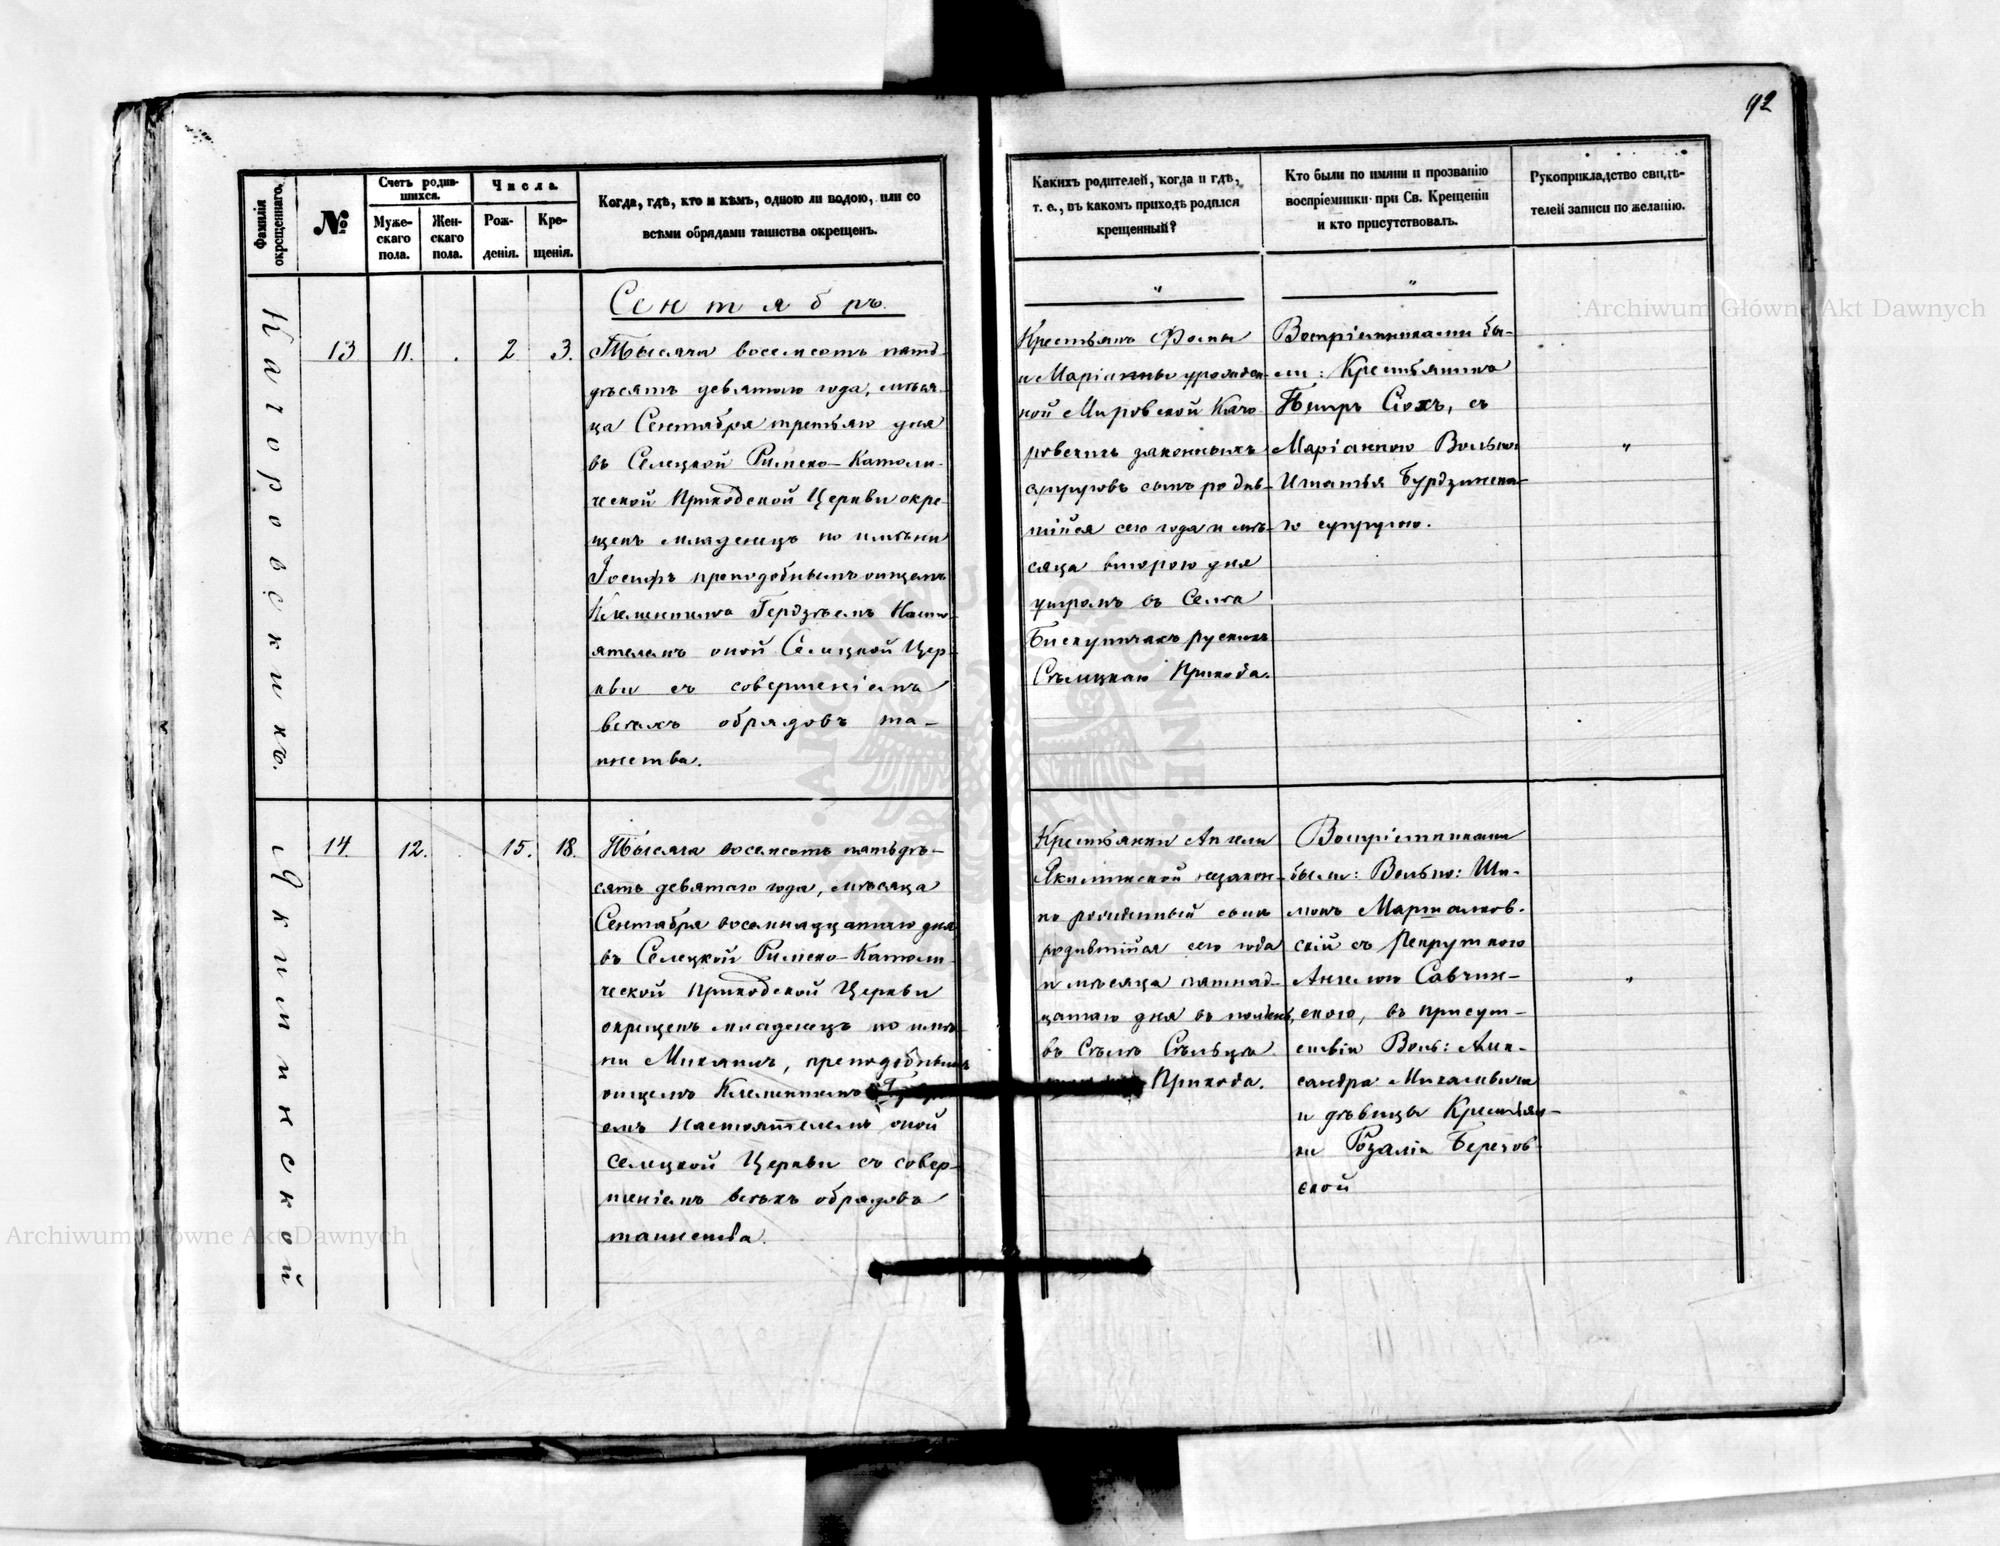 92
Фамилія окрещеннаго.
№
Счетъ родив-
шихся.
Муже-
скаго
пола.
Жен-
скаго
пола.
Числа.
Рож-
денія.
Кре-
щенія.
Когда, гдѣ, кто и кѣмъ, одною ли водою, или со
всѣми обрядами таинства окрещенъ.
Какихъ родителей, когда и гдѣ,
т. е., въ какомъ приходѣ родился
крещенный?
Кто были по имяни и прозванію
воспріемники при Св. Крещеніи
и кто присутствовалъ.
Рукоприкладство свидѣ-
телей записи по желанію.
Сентябрь.
13 11. 2 3.
Тысяча восемсотъ пятд-
десятъ девятаго года, мѣся-
ца Сентября третьяго дня
въ Селецкой Римско-Католи-
ческой Приходской Церкви окре-
щенъ младенецъ по имѣни
Іосифъ преподобнымъ отцемъ
Климентимъ Настo-
ятелемъ оной Селецкой Цер-
кви съ совершеніемъ
всѣхъ обрядовъ та-
инства.
Крестьянъ Фомы
и Маріанны урожден-
ной Мировской Каго-
ровскихъ законныхъ
супруговъ сынъ родив-
шійся сего года и мѣ-
сяца втораго дня
утромъ въ Селѣ
Бискупичахъ рускихъ
Сѣлецкаго Прихода.
Воспріемниками бы-
ли: Крестьянинъ
Петръ Сохъ, съ
Маріанною Вольно:
Игнатья Бурдзинска-
го супругою.
14. 12. 15. 18.
Тысяча восемсотъ пятьдѣ-
сятъ девятаго года, мѣсяца
Сентября восемнадцатаго дня
въ Селецкой Римско-Католи-
ческой Приходской Церкви
окрещенъ младенецъ по имѣ-
ни Михаилъ, преподобнымъ
отцемъ Климентимъ
емъ Настоятелемъ оной
Селецкой Церкви съ совер-
шеніемъ всѣхъ обрядовъ
таинства.
Крестьянки Ангели
Якилинской незакон-
но рожденный сынъ
родившійся сего года
и мѣсяца пятнад-
цатаго дня въ
въ Сѣлѣ Сѣльцѣ
Прихода.
Воспріемниками
были: Вольно: Ши-
монъ Маршалков-
скій съ Рекруткою
Ангелою Савчин-
скою, въ присут-
ствіи Воль: Алек-
сандра Михалевича
и дѣвицы Крестьян-
ки Розаліи Березов-
ской
Archiwum Główne Akt Dawnych
Archiwum Główne Akt Dawnych